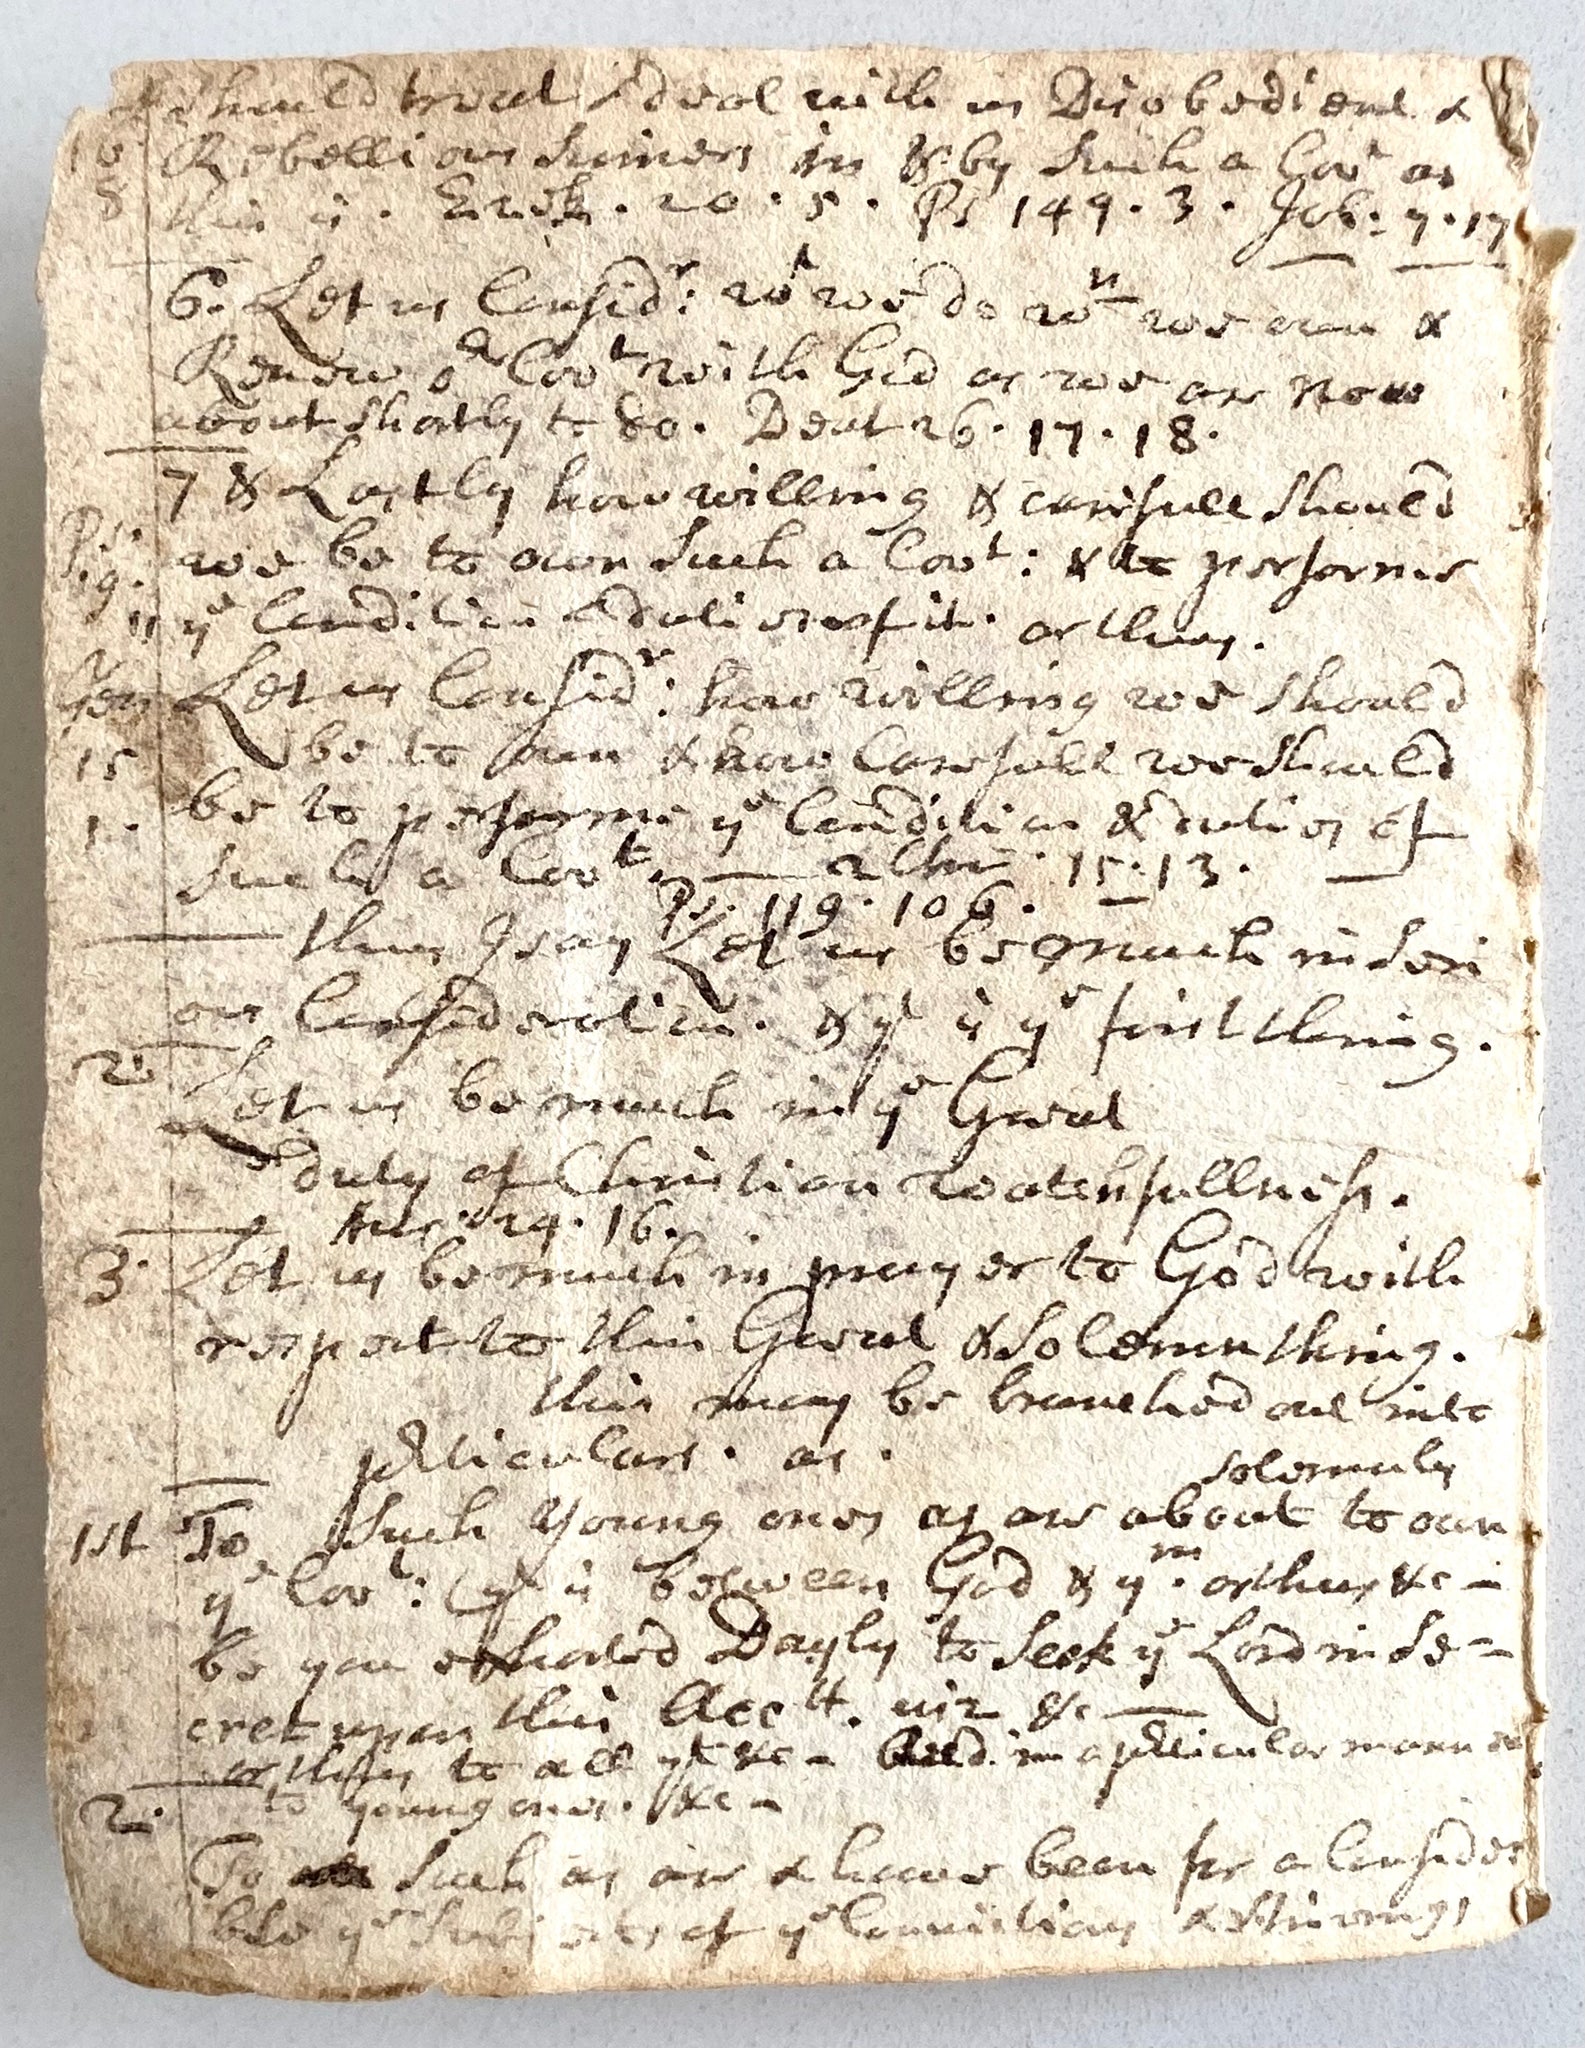 should treat & deal with us Disobedient &
Rebellious sinners in & by such a Covt as
this is. Ezek. 20. 5. Ps 149. 3. Job: 7. 17
6. Let us Considr: wt we do wn we own &
Renew or Covt with God as we are now
about shortly to do. Deut 26. 17. 18.
7 & Lastly how willing & carefull should
we be to own such a Covt: & to performe
ye Condition & duties of it. or thus.
Let us Considr: how willing we should
be to own & how Carefull we should
be to performe ye Condition & duties of
such a Covt. — 2 Chr. 15. 13. —
Ps. 119. 106.
thus I say Let us be much in seri
ous Consideration. & yt is ye first thing.
2. Let us be much in ye Great
duty of Christian watchfullness.
24. 16.
3. Let us be much in prayer to God with
respect to this Great & solemn thing.
this may be branched out into
pticulars. as.
solemnly
1st To such Young ones as are about to own
ye Covt: (yt is between God & ym. or thus &c —
be you exhorted Dayly to seek ye Lord in se-
cret upon this Acctt. viz &c —
or thus to all yt &c — in a pticular manner
to young ones. &c —
2. To such as are & have been for a Consider
ble ye subjects of ye Convictions & strivings
Ps.
119.
11
Gen
15
1.